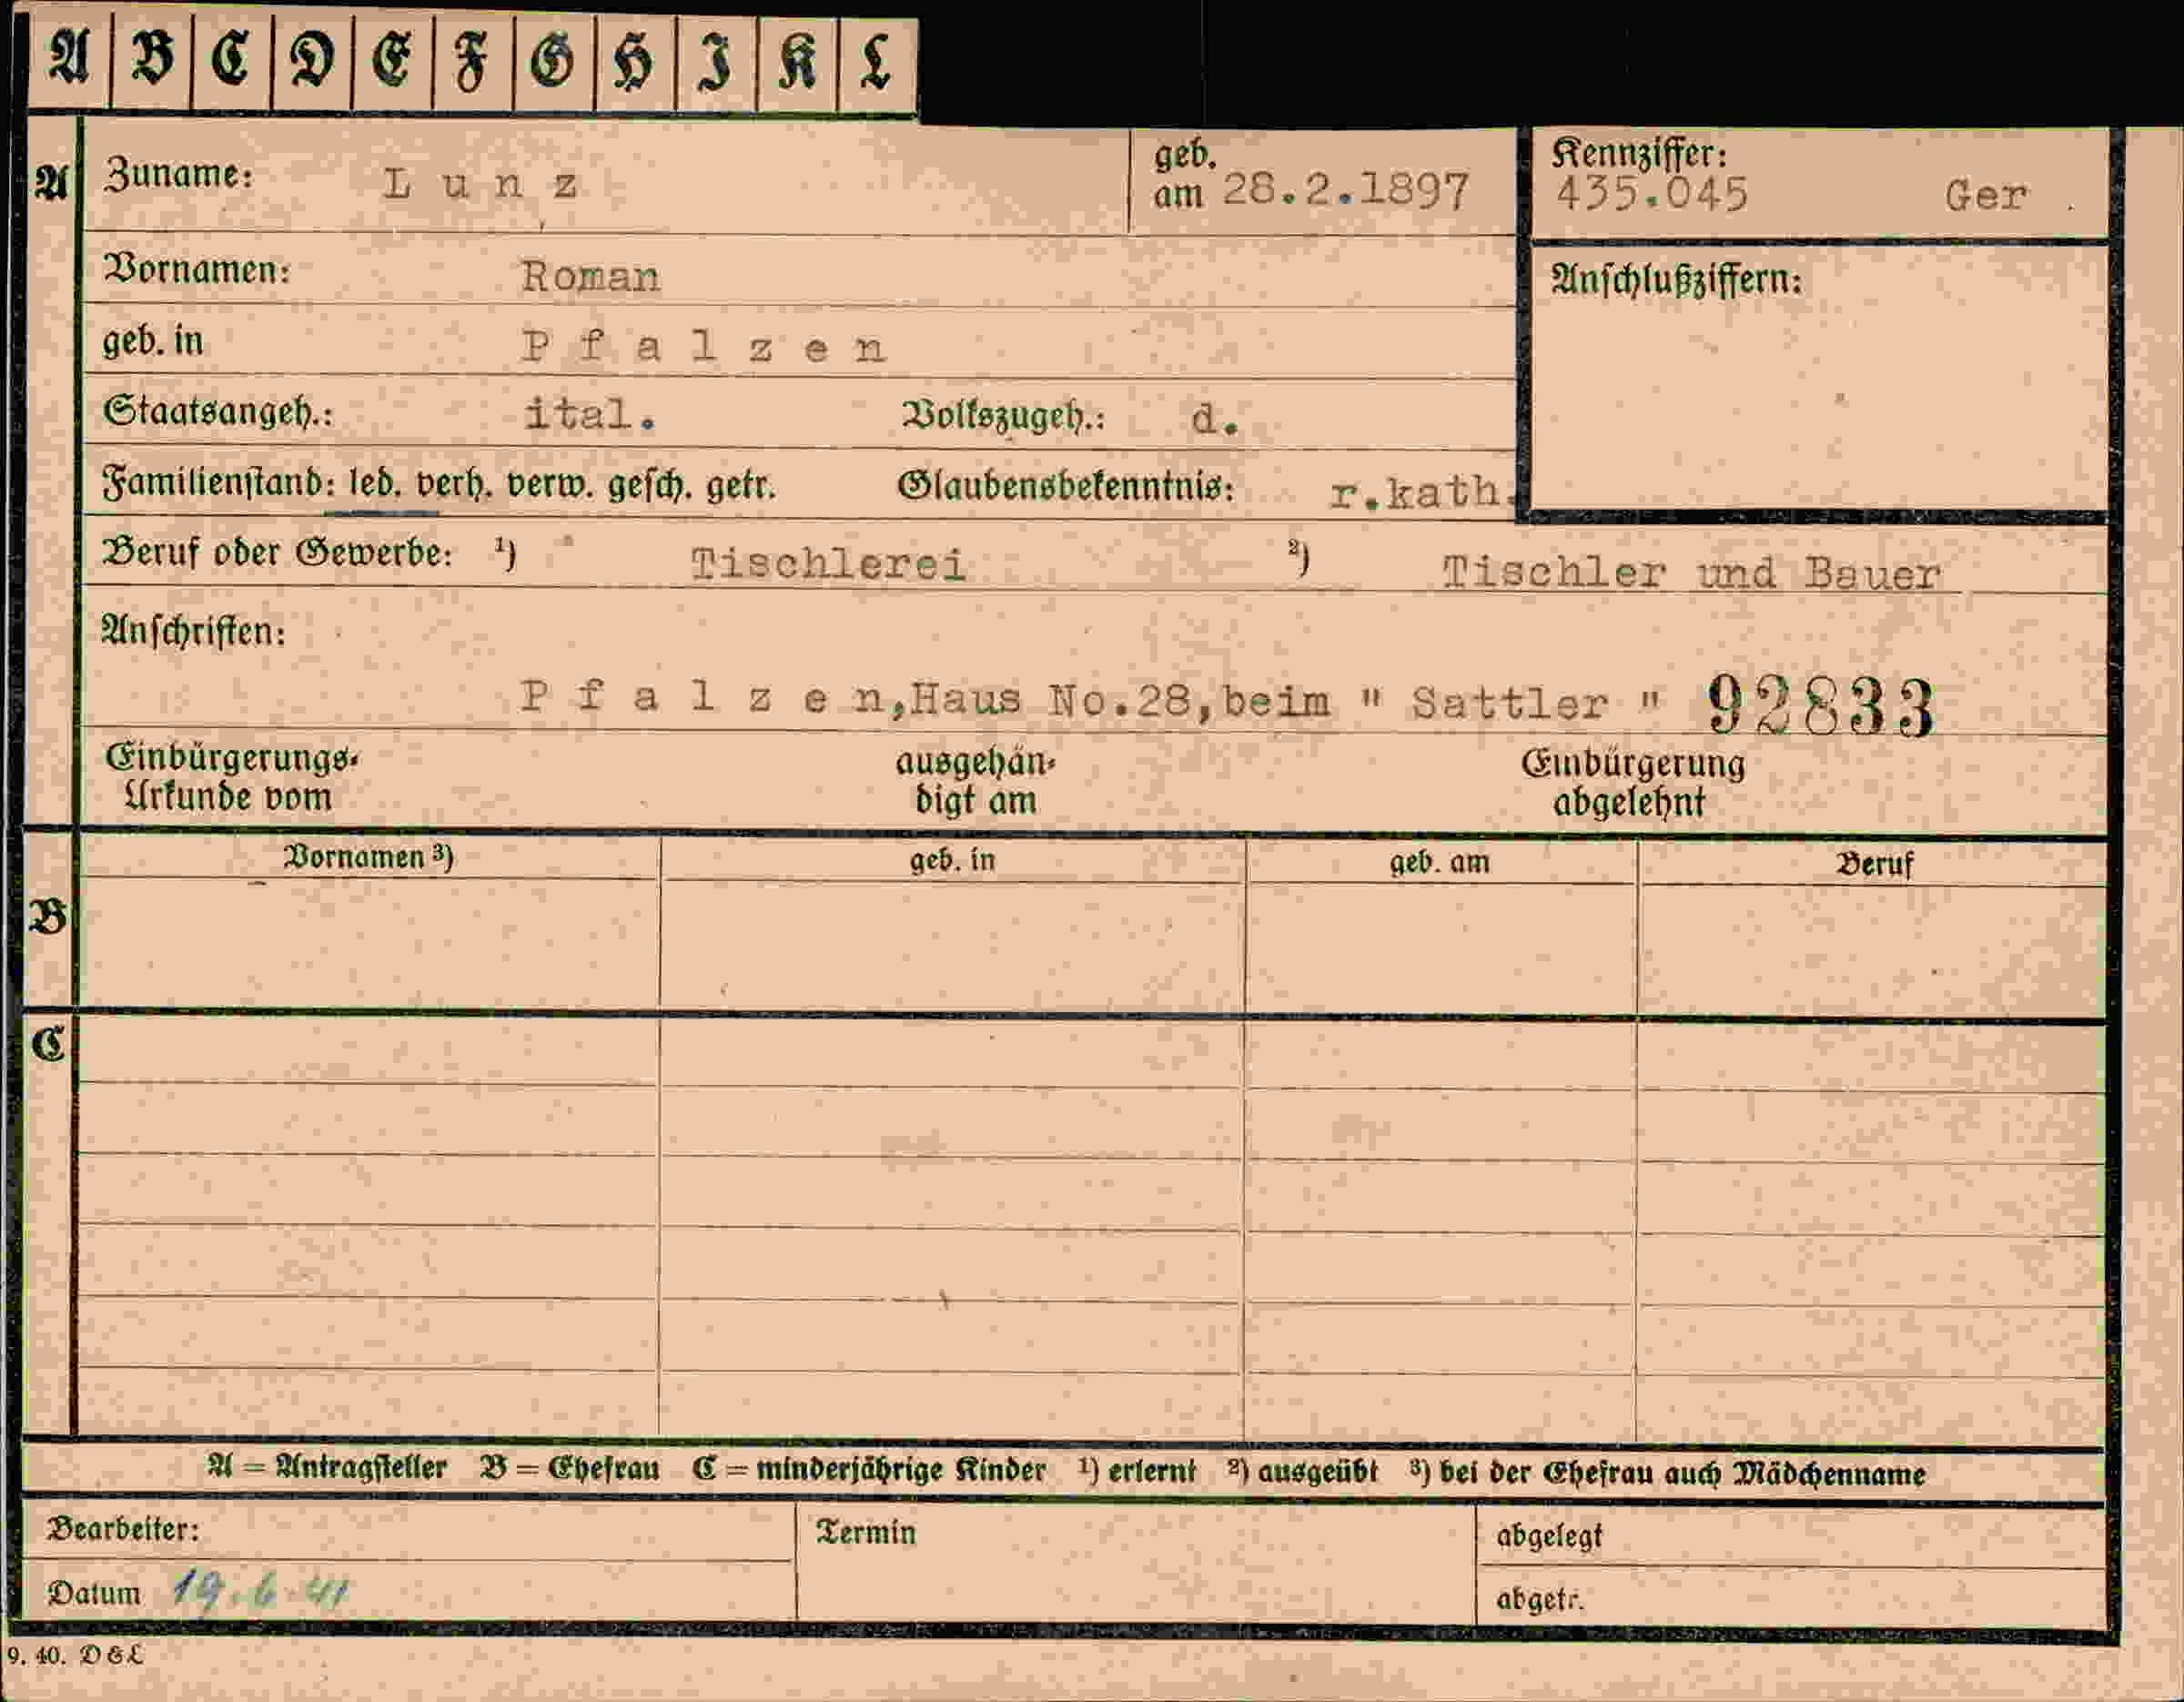 A B C D E F G H I K L
A Zuname: Lunz geb. am 28.2.1897 Kennziffer: 435.045 Ger
Vornamen: Roman Anschlußziffern:
geb. in Pfalzen
Staatsangeh.: ital. Volkszugeh.: d.
Familienstand: led. verh. verw. gesch. getr. Glaubensbekenntnis: r.kath.
Beruf oder Gewerbe: ¹) Tischlerei ²) Tischler und Bauer
Anschriften:
Pfalzen,Haus No.28,beim " Sattler " 92833
Einbürgerungs- ausgehän- Einbürgerung
Urkunde vom digt am abgelehnt
Vornamen ³) geb. in geb. am Beruf
B
C
A = Antragsteller B = Ehefrau C = minderjährige Kinder ¹) erlernt ²) ausgeübt ³) bei der Ehefrau auch Mädchenname
Bearbeiter: Termin abgelegt
Datum 19.6.41 abgetr.
9. 40. D & L